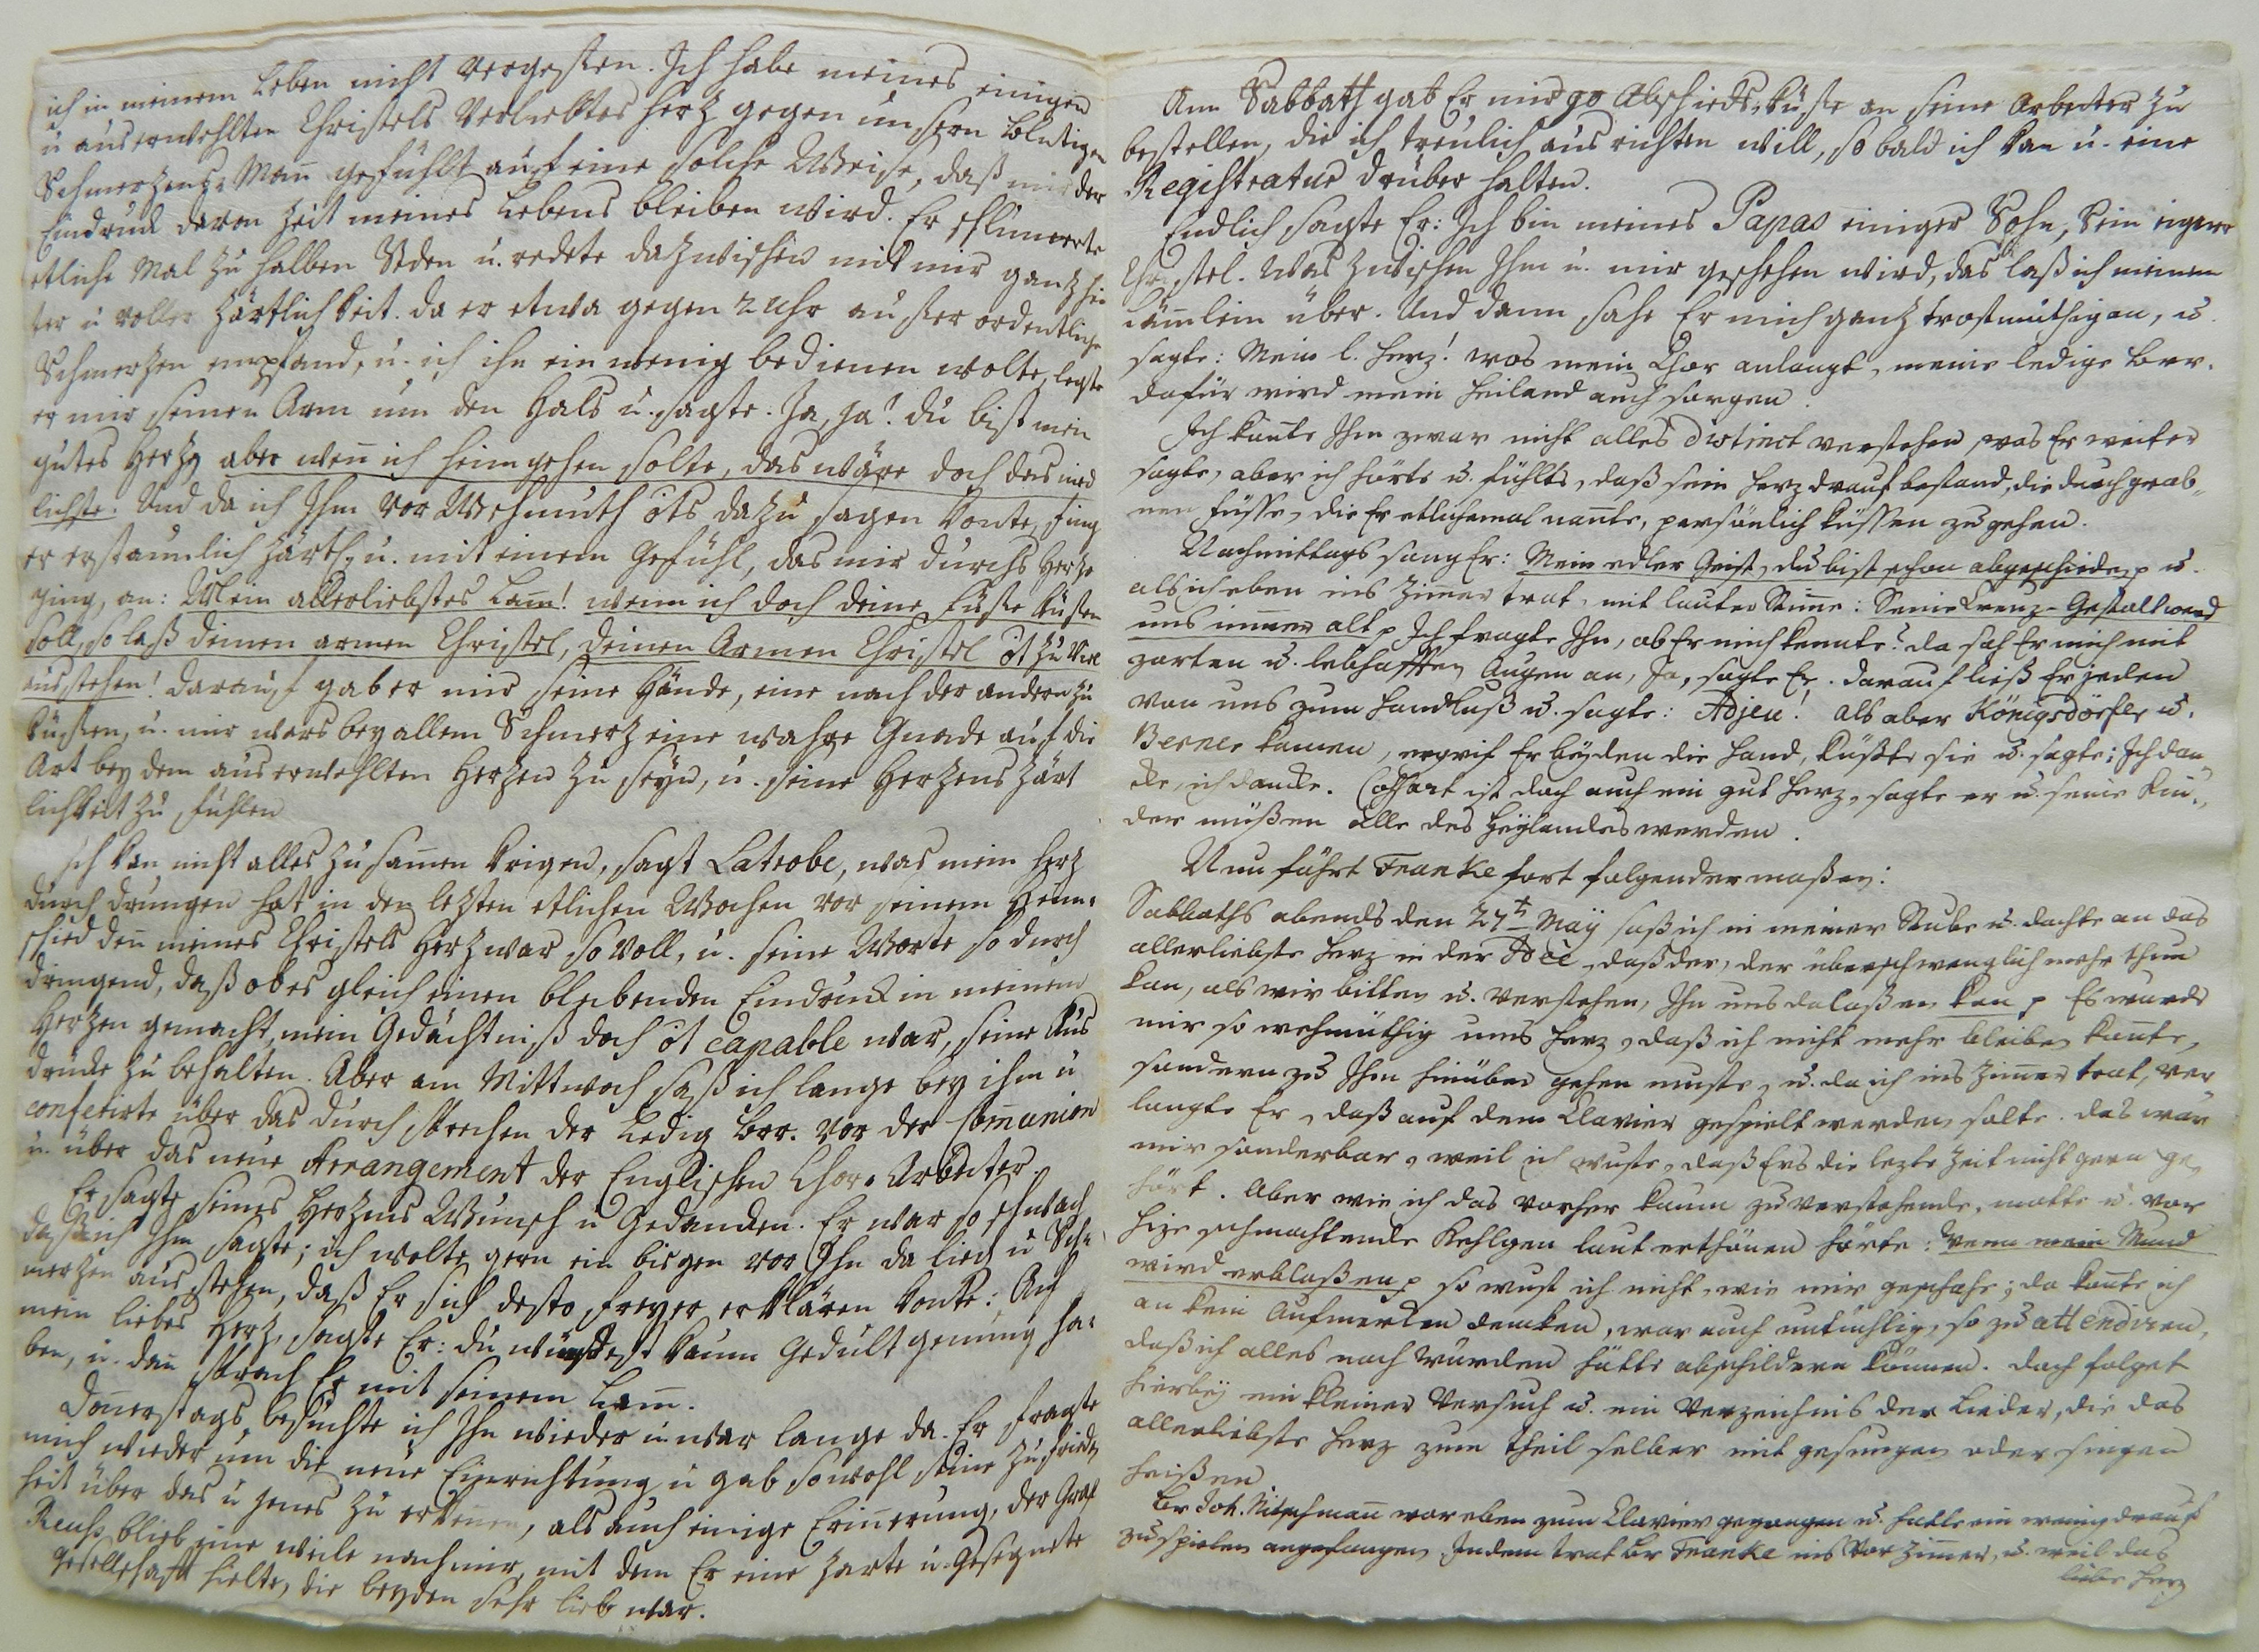 ich in meinem Leben nicht vergeßen. Ich habe meines einigen
u auserwehlten Christels Verliebtes Herz gegen unsern blutigen
Schmerzens-Mañ gefühlt auf eine solche Weise, daß mir der
Eindruck davon Zeit meines Lebens bleiben wird. Er schlumerte
etliche Mal zu halben Stden u. redete dazwischen mit mir ganz hei
ter u voller Zärtlichkeit. Da er etwa gegen 2 Uhr außerordentliche
Schmerzen empfand, u. ich ihn ein wenig bedienen wolte, legte
er mir seinen Arm um den Hals u. sagte: Ja, Ja! du bist mein
gutes Herz, aber weñ ich heimgehen solte, das wäre doch das nied
lichste. Und da ich Ihm vor Wehmuth ôts dazu sagen konte, fing
er erstaunlich zärtl. u. mit einem Gefühl, das mir durchs Herze
ging, an: Mein allerliebstes Lam̃! wenn ich doch deine Füße küßen
soll, so laß deinen armen Christel, deinen Armen Christel ôt zu viel
ausstehen! Darauf gab er mir seine Hände, eine nach der andern zu
küßen, u. mir wars bey allem Schmerz eine wahre Gnade auf die
Art bey dem auserwehlten Herzen zu seyn, u. seine Herzens Zärt
lichkeit zu fühlen
Ich kan nicht alles zusam̃en krigen, sagt Latrobe, was mein Herz
durchdrungen hat in den lezten etlichen Wochen vor seinem Heim-
schied deñ meines Christels Herz war so voll, u. seine Worte so durch
dringend, daß ob es gleich einen bleibenden Eindruck in meinem
Herzen gemacht, mein Gedächtniß doch ôt capable war, seine Aus
drücke zu behalten. Aber am Mittwoch saß ich lange bey ihm u
conferirte über das Durchsprechen der Ledig Brr. vor der Com̃union
u. über das neue Arrangement der Englischen Chor-Arbeiter.
Er sagte seines Herzens Wunsch u Gedancken. Er war so schwach
daß ich Ihm sagte; ich wolte gern ein bisgen vor Ihn da lieg u Sch-
merzen ausstehen, daß Er sich desto freyer erklären konte: Ach
mein liebes Herz, sagte Er: du würdest kaum Gedult genung ha-
ben, u. dañ sprach Er mit seinem Lam̃.
Doñerstags besuchte ich Ihn wieder u. war lange da. Er fragte
mich wieder um die neue Einrichtung u gab sowohl seine Zufrieden
heit über das u jenes zu erkenen, als auch einige Eriñerung, der Graf
Reuß blieb eine weile nach mir, mit dem Er eine zarte u. Gesegnete
Gesellschaft hielte, die beyden sehr lieb war.
Am Sabbath gab Er mir 90 Abschieds-küße an seine Arbeiter zu
bestellen, die ich treulich ausrichten will, so bald ich kan u. eine
Registratur drüber halten.
Endlich sagte Er: Ich bin meines Papas einiger Sohn, Sein eigener
Christel. Was zwischen Ihm u. mir geschehen wird, das laß ich meinem
Läm̃lein über. Und dann sahe Er mich ganz trostmüthig an, u.
sagte: Mein l. Herz! was mein Chor anlangt, meine ledige Brr.
dafür wird mein Heiland auch sorgen.
Ich kan̄te Ihm zwar nicht alles distinct verstehen, was Er weiter
sagte, aber ich hörte u. fühlte, daß sein Herz drauf bestand, die durchgrab-
nen Füsse, die Er etlichemal nan̄te, persönlich küssen zu gehen.
Nachmittags sang Er: Mein edler Geist, du bist schon abgeschieden p u.
als ich eben ins Zim̃er trat, mit lauter Stim̃e: Seine Creuz-Gestalt werd
uns im̃er alt p Ich fragte Ihn, ob Er mich kennte? da sah Er mich mit
zarten u. lebhafften Augen an, Ja, sagte Er. darauf ließ Er jeden
von uns zum Handkuß u. sagte: Adjeu! als aber Königsdörfer u.
Berner kamen, ergrif Er beyden die Hand, küßte sie u. sagte: Ich dan
cke, ich dancke. Cossart ist doch auch ein gut Herz, sagte er u. seine Kin-
der müßen alle des Heylandes werden.
Nun fährt Franke fort folgendermaßen:
Sabbaths abends den 27t Maÿ saß ich in meiner Stube u. dachte an das
allerliebste Herz in der Idée, daß der, der überschwenglich mehr thun
kan, als wir bitten u. verstehen, Ihn uns dalaßen kan p Es wurde
mir so wehmüthig ums Herz, daß ich nicht mehr bleiben kon̄te,
sondern zu Ihm hinüber gehen muste, u. da ich ins Zim̃er trat, ver
langte Er, daß auf dem Clavier gespielt werden solte. das war
mir sonderbar, weil ich wuste, daß Ers die lezte Zeit nicht gern ge-
hört. Aber wie ich das vorher kaum zu verstehende, matte u. vor
Hize schmachtende Kehlgen laut erthönen hörte: Wenn mein Mund
wird erblaßen p so wust ich nicht, wie mir geschahe; da kon̄te ich
an kein Aufmercken dencken, war auch untüchtig, so zu attendiren,
daß ich alles nach Würden hätte abschildern können. Doch folget
hierbeÿ ein kleiner Versuch u. ein Verzeichnis der Lieder, die das
allerliebste Herz zum theil selber mit gesungen oder singen
heißen
Br Joh. Nitschman̄ war eben zum Clavier gegangen u. hatte ein wenig drauf
zu spielen angefangen, Indem trat Br Franke ins Vorzim̃er, u. weil das
liebe Herz